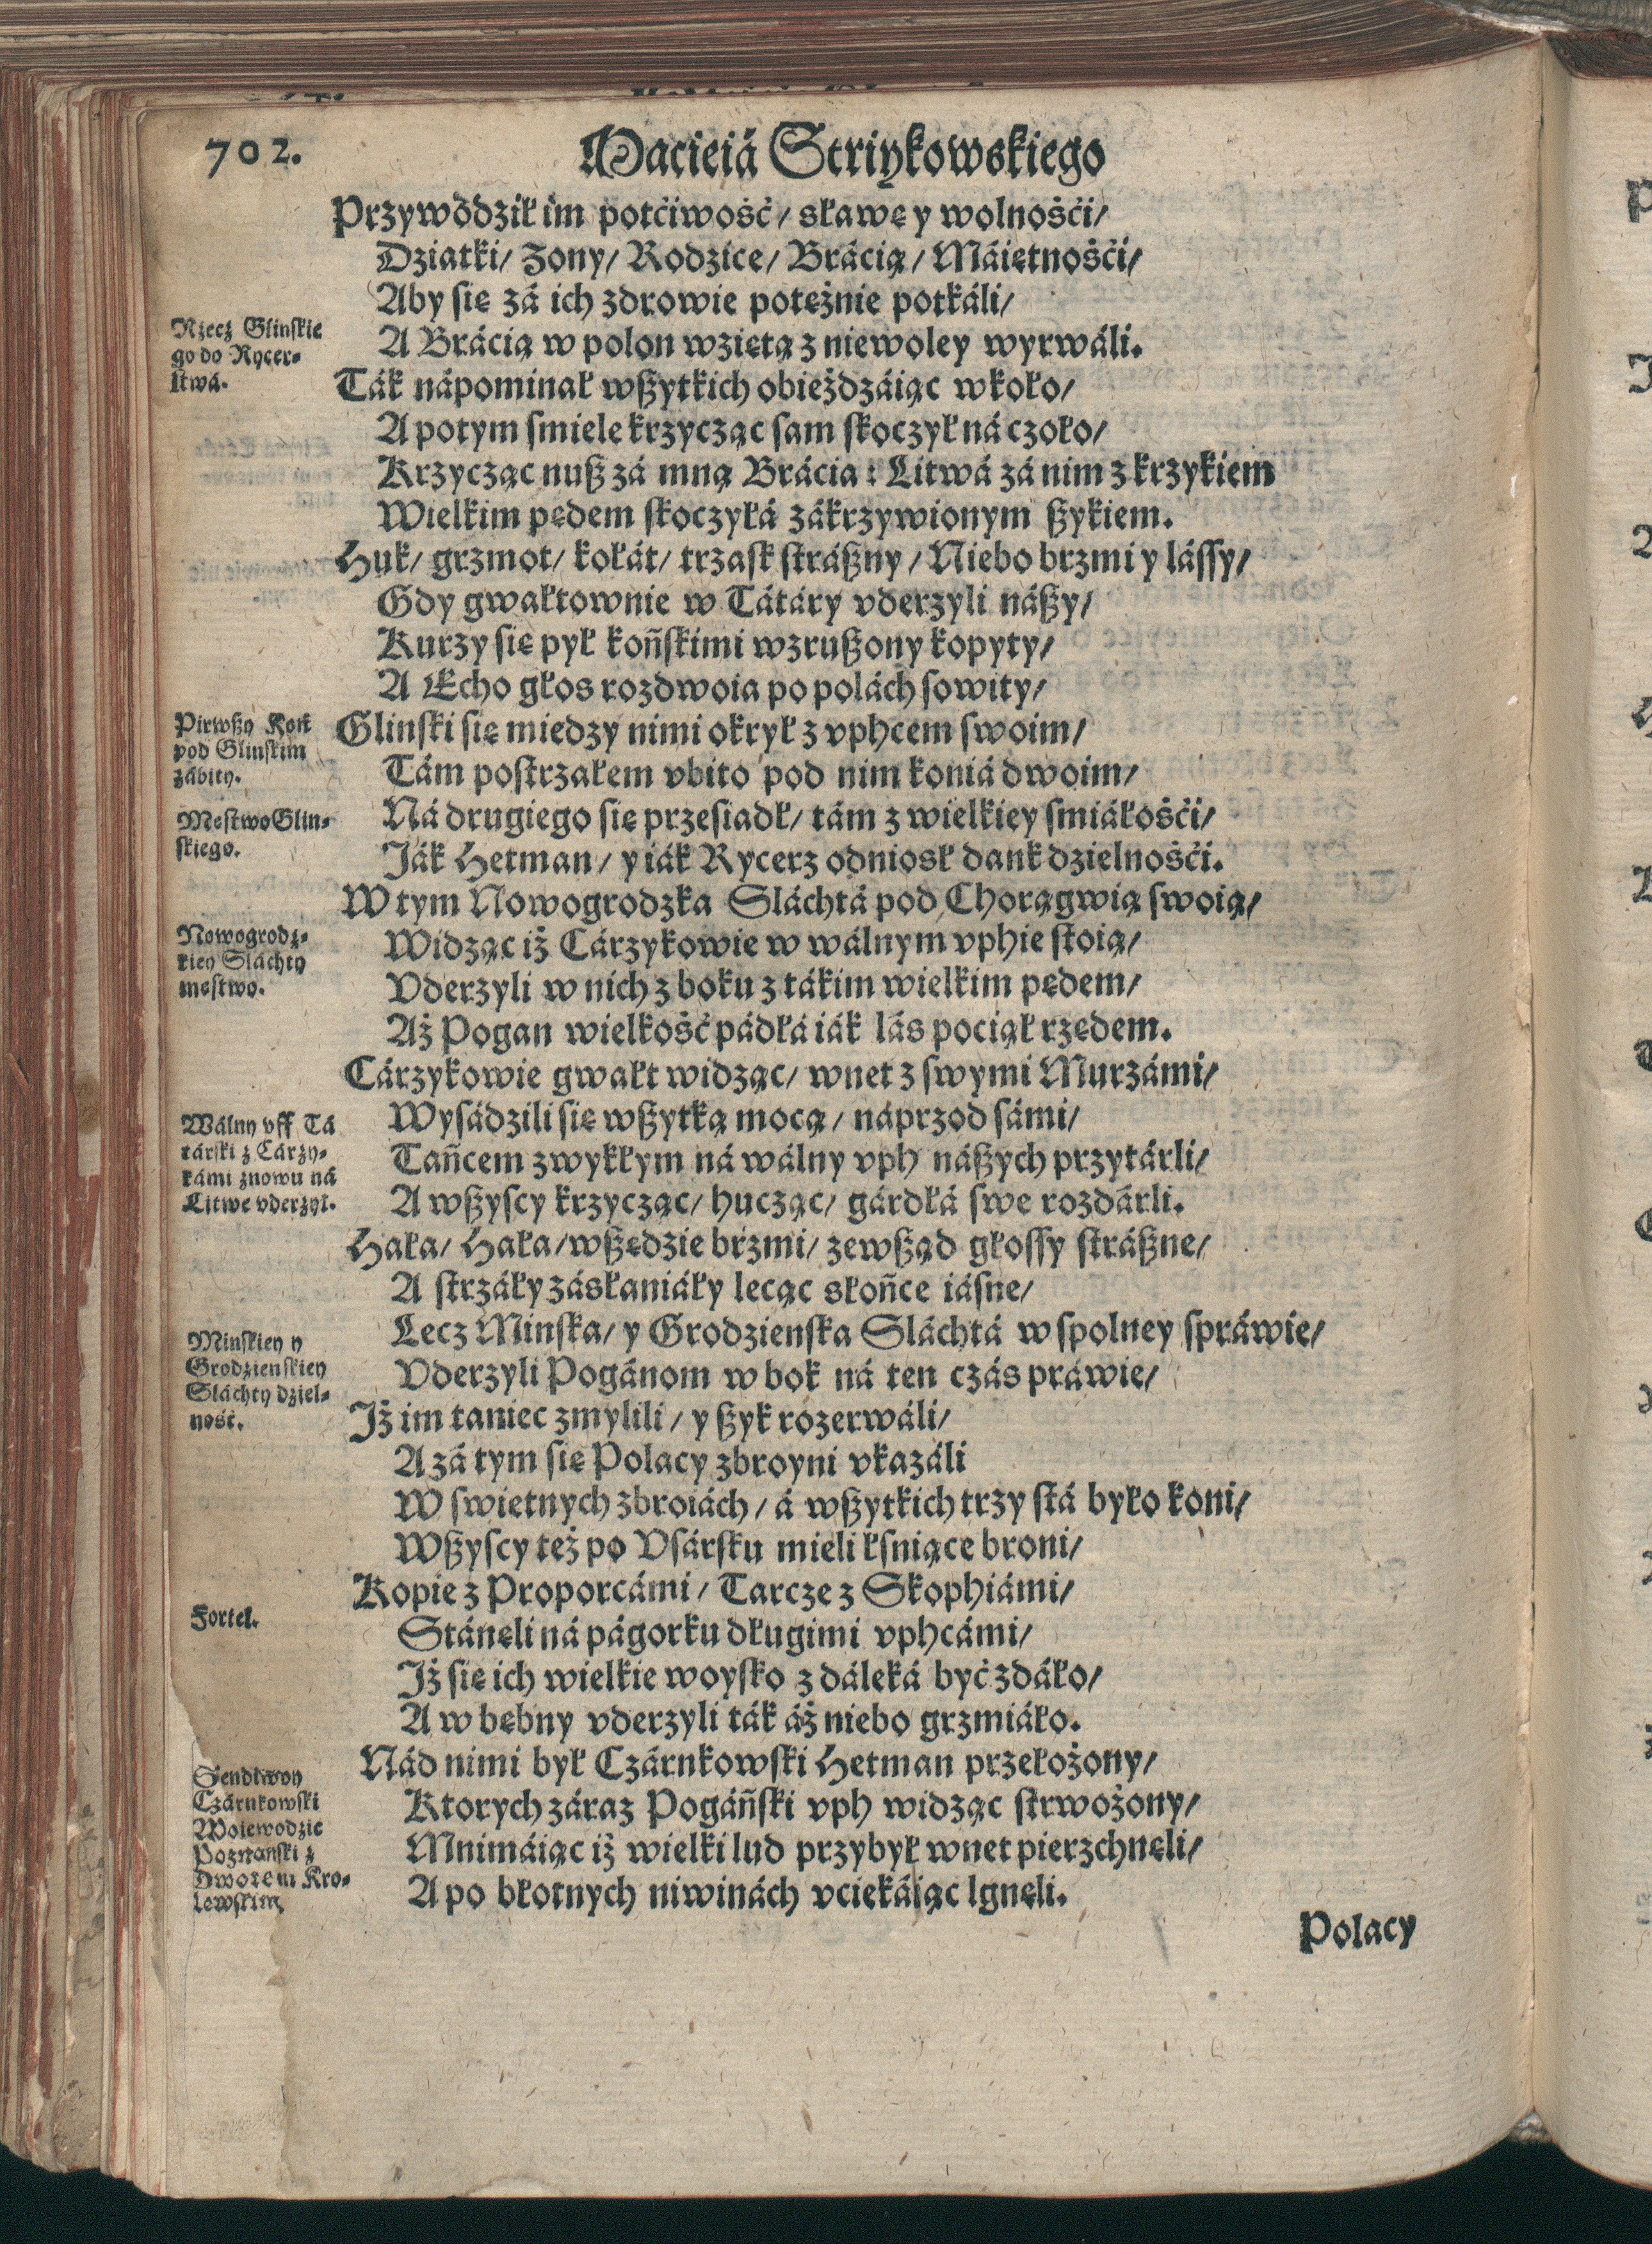 702.
Macieiá Striykowskiego
Przywodził im potćiwość/ sławę y wolnośći/
Dziatki/ Zony/ Rodzice/ Brácią/ Máiętnośći/
Aby się zá ich zdrowie potężnie potkáli/
Rzecz Glinskie
go do Rycer-
stwá.
A Brácią w polon wziętą z niewoley wyrwáli.
Ták nápominał wszytkich obieżdzáiąc wkoło/
A potym smiele krzycząc sam skoczył ná czoło/
Krzycząc nusz zá mną Brácia : Litwá zá nim z krzykiem
Wielkim pędem skoczyłá zákrzywionym szykiem.
Huk/ grzmot/ kołát/ trzask strászny/ Niebo brzmi y lássy/
Gdy gwałtownie w Tátáry vderzyli nászy/
Kurzy się pył końskimi wzruszony kopyty/
A Echo głos rozdwoia po polách sowity/
Pirwszy Koń
pod Glinskim
zábity.
Glinski się miedzy nimi okrył z vphcem swoim/
Tám postrzałem vbito pod nim koniá dwoim/
Męstwo Glin-
skiego.
Ná drugiego się przesiadł/ tám z wielkiey smiáłośći/
Ják Hetman/ y iák Rycerz odniosł dank dzielnośći.
W tym Nowogrodzka Slácht́á pod Chorągwią swoią/
Nowogrodz-
kiey Sláchty
męstwo.
Widząc iż Cárzykowie w wálnym vphie stoią/
Vderzyli w nich z boku z tákim wielkim pędem/
Aż Pogan wielkość pádłá iák lás pociął rzędem.
Cárzykowie gwałt widząc/ wnet z swymi Murzámi/
Wálny vff Tá
társki z Cárzy-
kámi znowu ná
Litwę vderzył.
Wysádzili się wszytką mocą/ náprzod sámi/
Tańcem zwykłym ná wálny vph nászych przytárli/
A wszyscy krzycząc/ hucząc/ gárdłá swe rozdárli.
Hała/ Hała/ wszędzie brzmi/ zewsząd głossy strászne/
A strzáły zásłaniáły lecąc słońce iásne/
Minskiey y
Grodzienskiey
Sláchty dziel-
ność.
Lecz Minska/ y Grodzienska Sláchtá w spolney spráwie/
Vderzyli Pogánom w bok ná ten czás práwie/
Jż im taniec zmylili/ y szyk rozerwáli/
A zá tym się Polacy zbroyni vkazáli
W swietnych zbroiách/ á wszytkich trzy stá było koni/
Wszyscy też po Vsársku mieli łsniące broni/
Kopie z Proporcámi/ Tarcze z Skophiámi/
Fortel.
Stánęli ná págorku długimi vphcámi/
Jż się ich wielkie woysko z dáleká być zdáło/
A w bębny vderzyli ták áż niebo grzmiáło.
Nád nimi był Czárnkowski Hetman przełożony/
Sendiwoy
Czárnkowski
Woiewodzic
Poznański z
Dworem Kro-
lewskim
Ktorych záraz Pogáński vph widząc strwożony/
Mnimáiąc iż wielki lud przybył wnet pierzchnęli/
A po błotnych niwinách vciekáiąc lgnęli.
Polacy